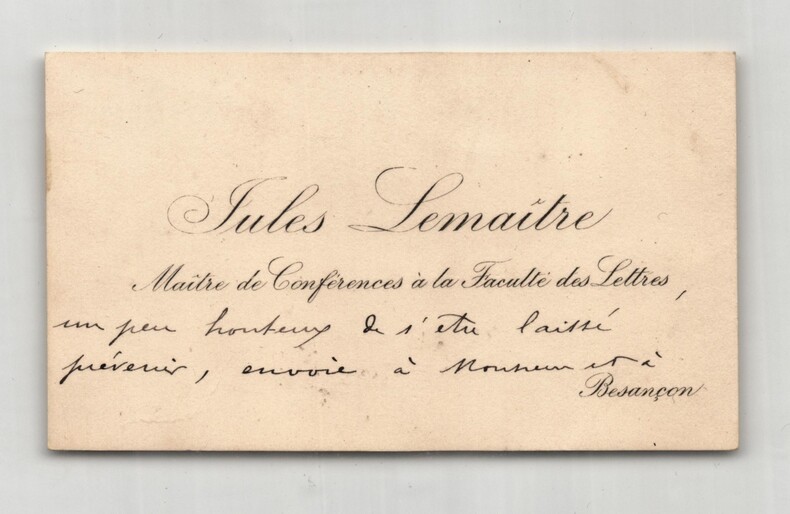 Jules Lemaître
Maître de Conférences à la Faculté des Lettres,
un peu honteux de s'être laissé
prévenir, envoie à Monsieur et à
Besançon